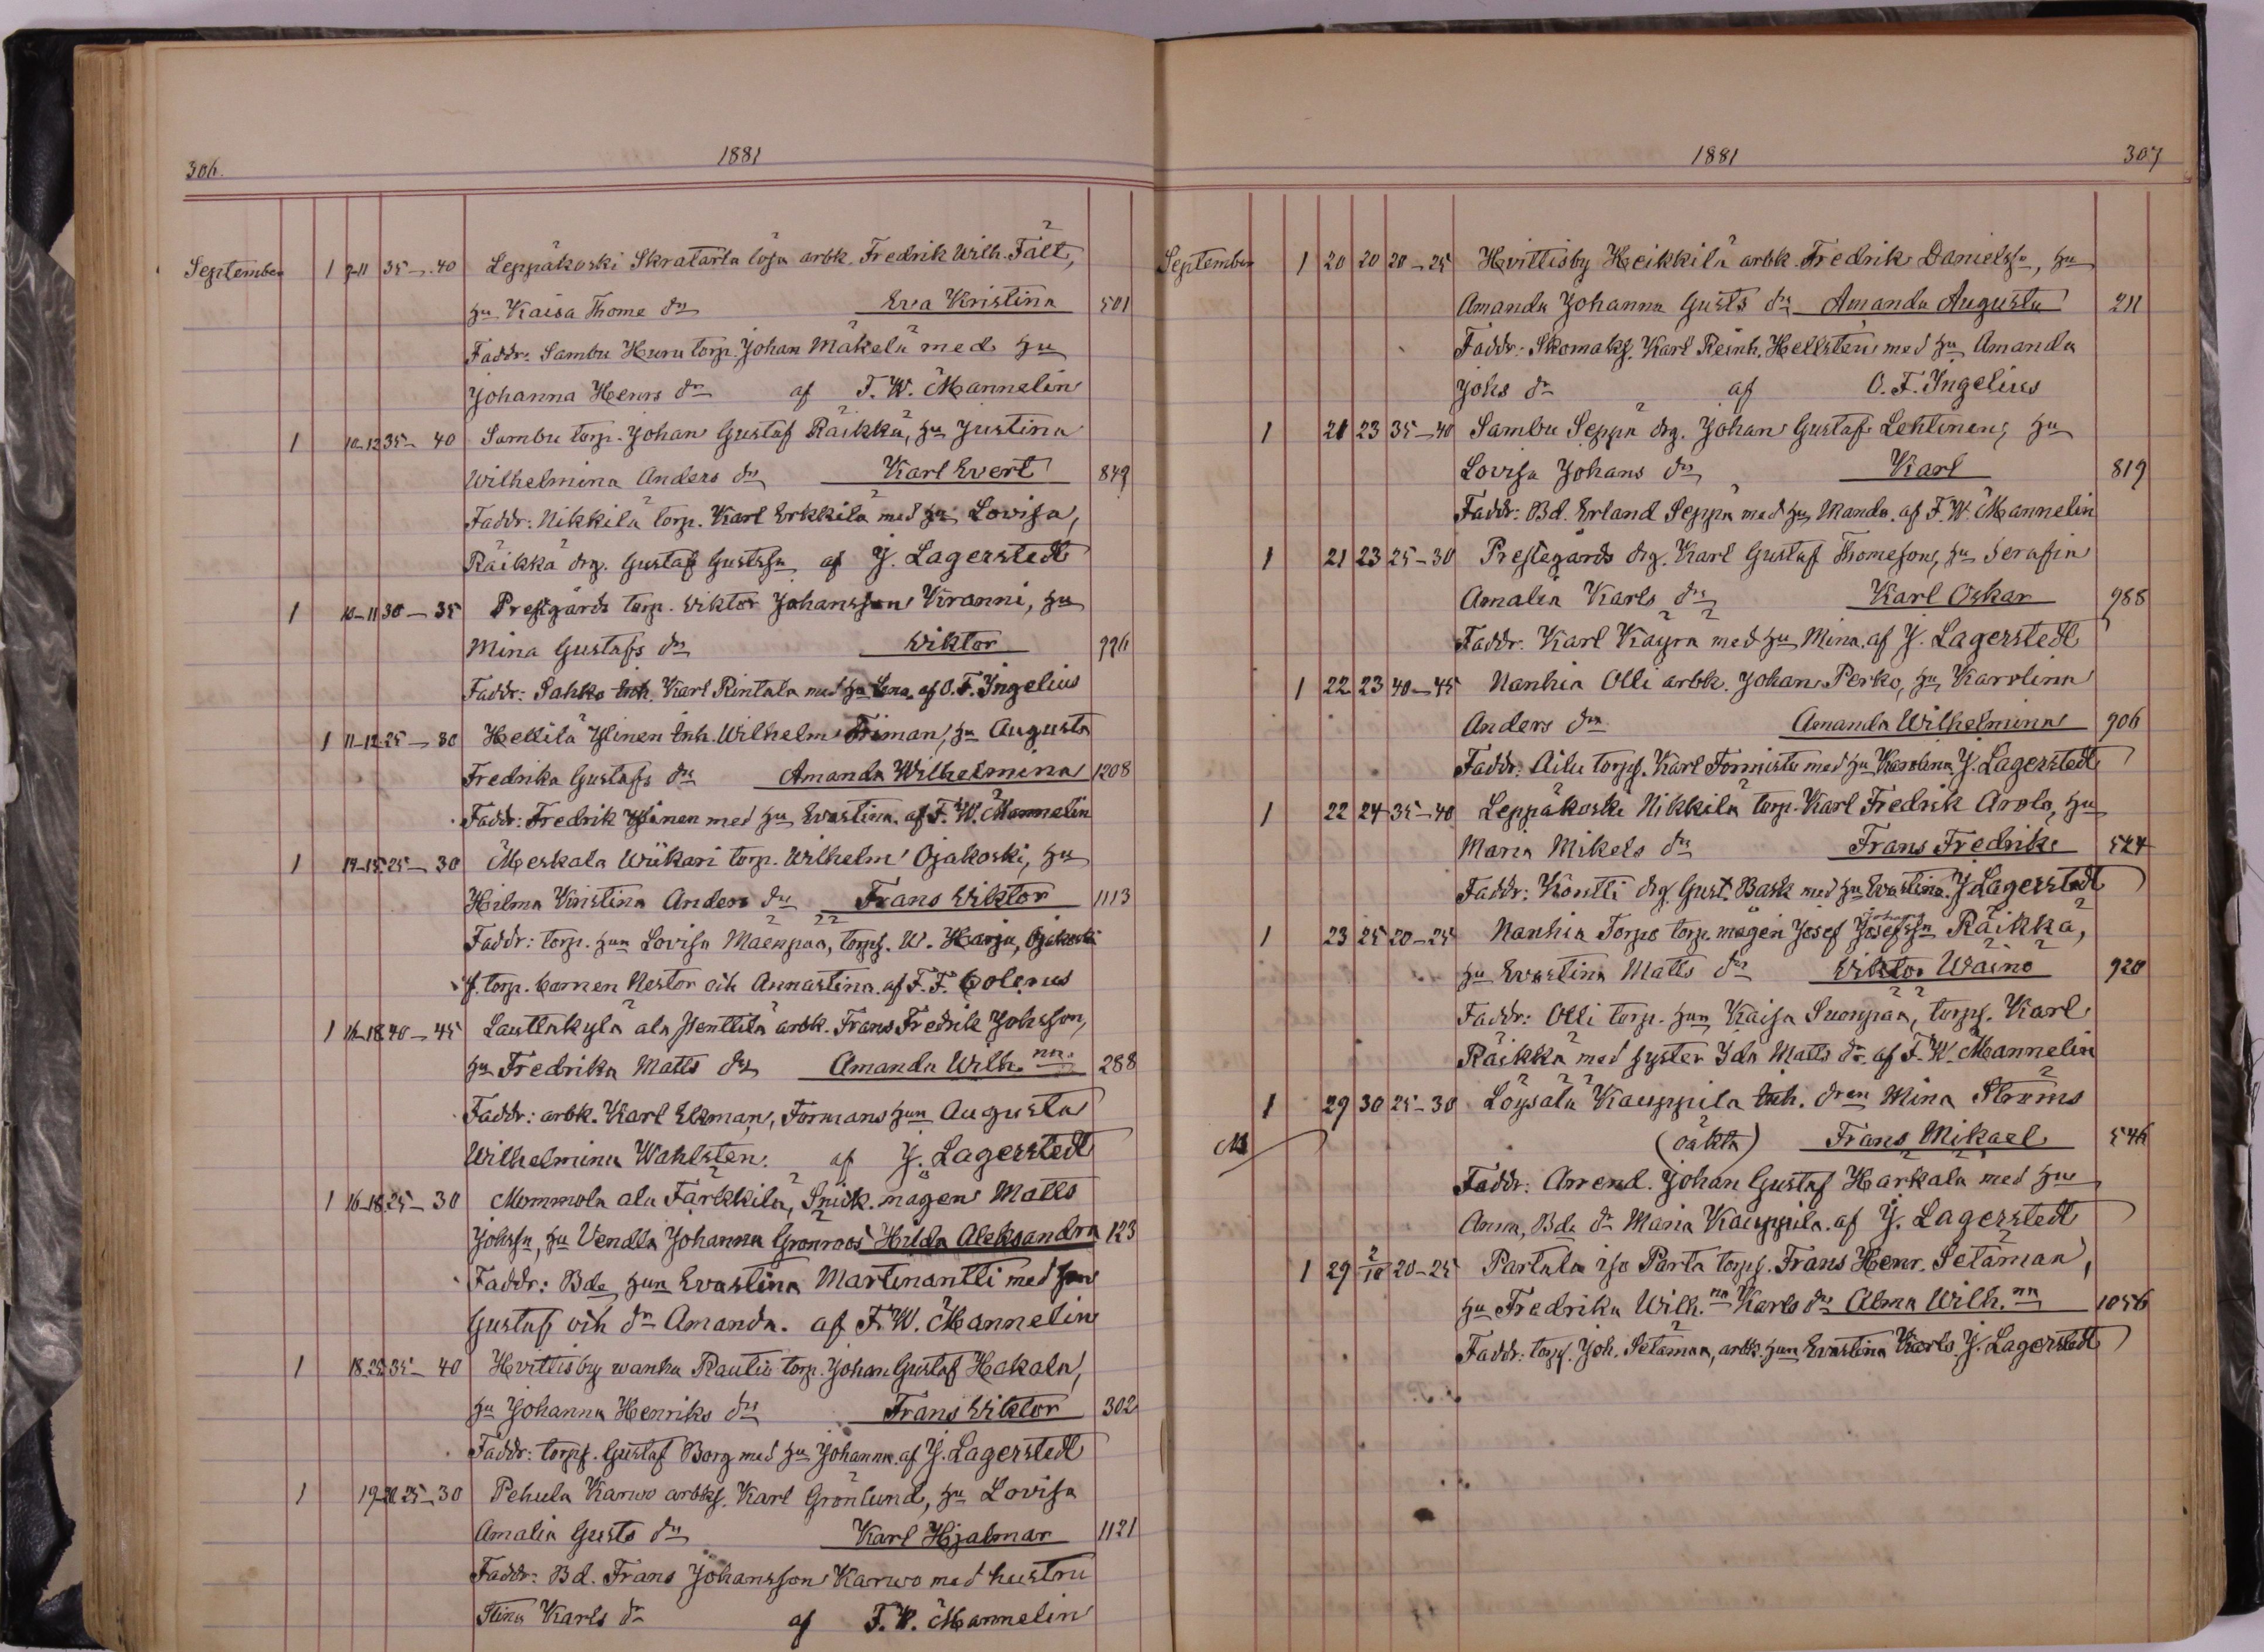 306.
1881
September 1 9-11 35-40 Leppäkoski Skratarla löja arbk. Fredrik Wilh. Fält,
hu Kaisa Thome dr Eva Kristina 501
Faddr: Sambu Huru torp. Johan Mäkelä med hu
Johanna Henrs dr af F. W. Mannelin
1 10-12 35-40 Sambu torp. Johan Gustaf Räikkä, hu Justina
Wilhelmina Anders dr Karl Evert 849
Faddr: Nikkilä torp. Karl Erkkilä med hu Lovisa,
Räikkä drg. Gustaf Gustfsn af J. Lagerstedt
1 10-11 30-35 Prestgårds torp. Viktor Johansson Kranni, hu
Mina Gustafs dr Viktor 996
Faddr: Sahko Inh. Karl Rintala med hu Lena af O. F. Ingelius
1 11-12 25-30 Hellilä Ylinen Inh. Wilhelm Friman, hu Augusta
Fredrika Gustafs dr Amanda Wilhelmina 1208
Faddr: Fredrik Ylinen med hu Evastina af F. W. Mannelin
1 14-15 25-30 Meskala Wiikari torp. Wilhelm Ojakoski, hu
Hilma Kristina Anders dr Frans Viktor 1113
Faddr: torp. hun Lovisa Mäenpää, torps. W. Harju, Ojakoski
f. torp. barnen Nestor och Annastina af F. F. Colerus
1 16-18 40-45 Lauttakylä ala Penttilä arbk. Frans Fredrik Johsson,
hu Fredrika Matts dr Amanda Wilh. na 288
Faddr: arbk. Karl Ekman, Formans hun Augusta
Wilhelmina Wahlsten. af J. Lagerstedt
1 16-18 25-30 Mommola ala Färkkilä, Snick. mågen Matts
Johssn, hu Vendla Johanna Grönroos Hilda Aleksandra 123
Faddr: Bde hun Evastina Martinantti med son
Gustaf och dr Amanda. af F. W. Mannelin
1 18-25 35-40 Hvittisby wanha Rautio torp. Johan Gustaf Hakala,
hu Johanna Henriks dr Frans Viktor 302
Faddr: torps. Gustaf Borg med hu Johanna af J. Lagerstedt
1 19-20 25-30 Pehula Karwo arbks. Karl Grönlund, hu Lovisa
Amalia Gusts dr Karl Hjalmar 1121
Faddr: Bd. Frans Johansson Karwo med hustru
Stina Karls dr af F. W. Mannelin
1881
307
September 1 20 20 20-25 Hvittisby Heikkilä arbk. Fredrik Danielssn, hu
Amanda Johanna Gusts dr Amanda Augusta 211
Faddr: Skomaks. Karl Reinh. Hellsten med hu Amanda
Johs dr af O. F. Ingelius
1 21 23 35-40 Sambu Seppä drg. Johan Gustaf Lehtinen, hu
Lovisa Johans dr Karl 819
Faddr: Bd. Erland Seppä med hu Manda af F. W. Mannelin
1 21 23 25-30 Prestegårds drg. Karl Gustaf Thomeson, hu Serafia
Amalia Karls dr Karl Oskar 988
Faddr: Karl Käyrä med hu Mina af J. Lagerstedt
1 22 23 40-45 Nanhia Olli arbk. Johan Perko, hu Karolina
Anders dr Amanda Wilhelmina 906
Faddr: Ailu torps. Karl Formisto med hu Karolina J. Lagerstedt
1 22 24 35-40 Leppäkoski Nikkilä torp. Karl Fredrik Arola, hu
Maria Mikels dr Frans Fredrik 524
Faddr: Kontti drg. Gust. Bask med hu Evastina J. Lagerstedt
1 23 25 20-25 Nanhia Torpo torp. mågen Josef Josefssn Räikkä,
hu Evastina Matts dr Viktor Wäinö 920
Faddr: Olli torp. hun Kaisa Suonpää, torps. Karl
Räikkä med syster Ida Matts dr af F. W. Mannelin
1 29 30 25-30 Löysälä Kauppila Inh. dren Mina Ströms
(oäkta) Frans Mikael 546
Faddr: Arrend. Johan Gustaf Härkälä med hu
Anna, Bde dr Maria Kauppila. af J. Lagerstedt
1 29 2/10 20-25 Partala iso Parta torps. Frans Henr. Setämaa,
hu Fredrika Wilh. na Karls dr Alma Wilh. na 1056
Faddr: torps. Joh. Setämaa, arbk. hun Evastina Karls J. Lagerstedt